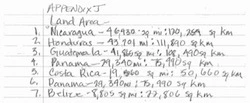 Appendix J
Land Area
1. Nicaragua - 46,430 sq mi: 120,254 sq km
2. Honduras - 43,201 mi: 111,890 sq km
3. Guatemala - 41,865 mi: 108,430 sq km
4. Panama - 29,340 mi: 75,990 sq km
5. Costa Rica - 19,560 sq mi: 50,660 sq km
6. Panama - 29,340 mi: 75,990 sq km
7. Belize - 8,805 sq mi: 22,806 sq km